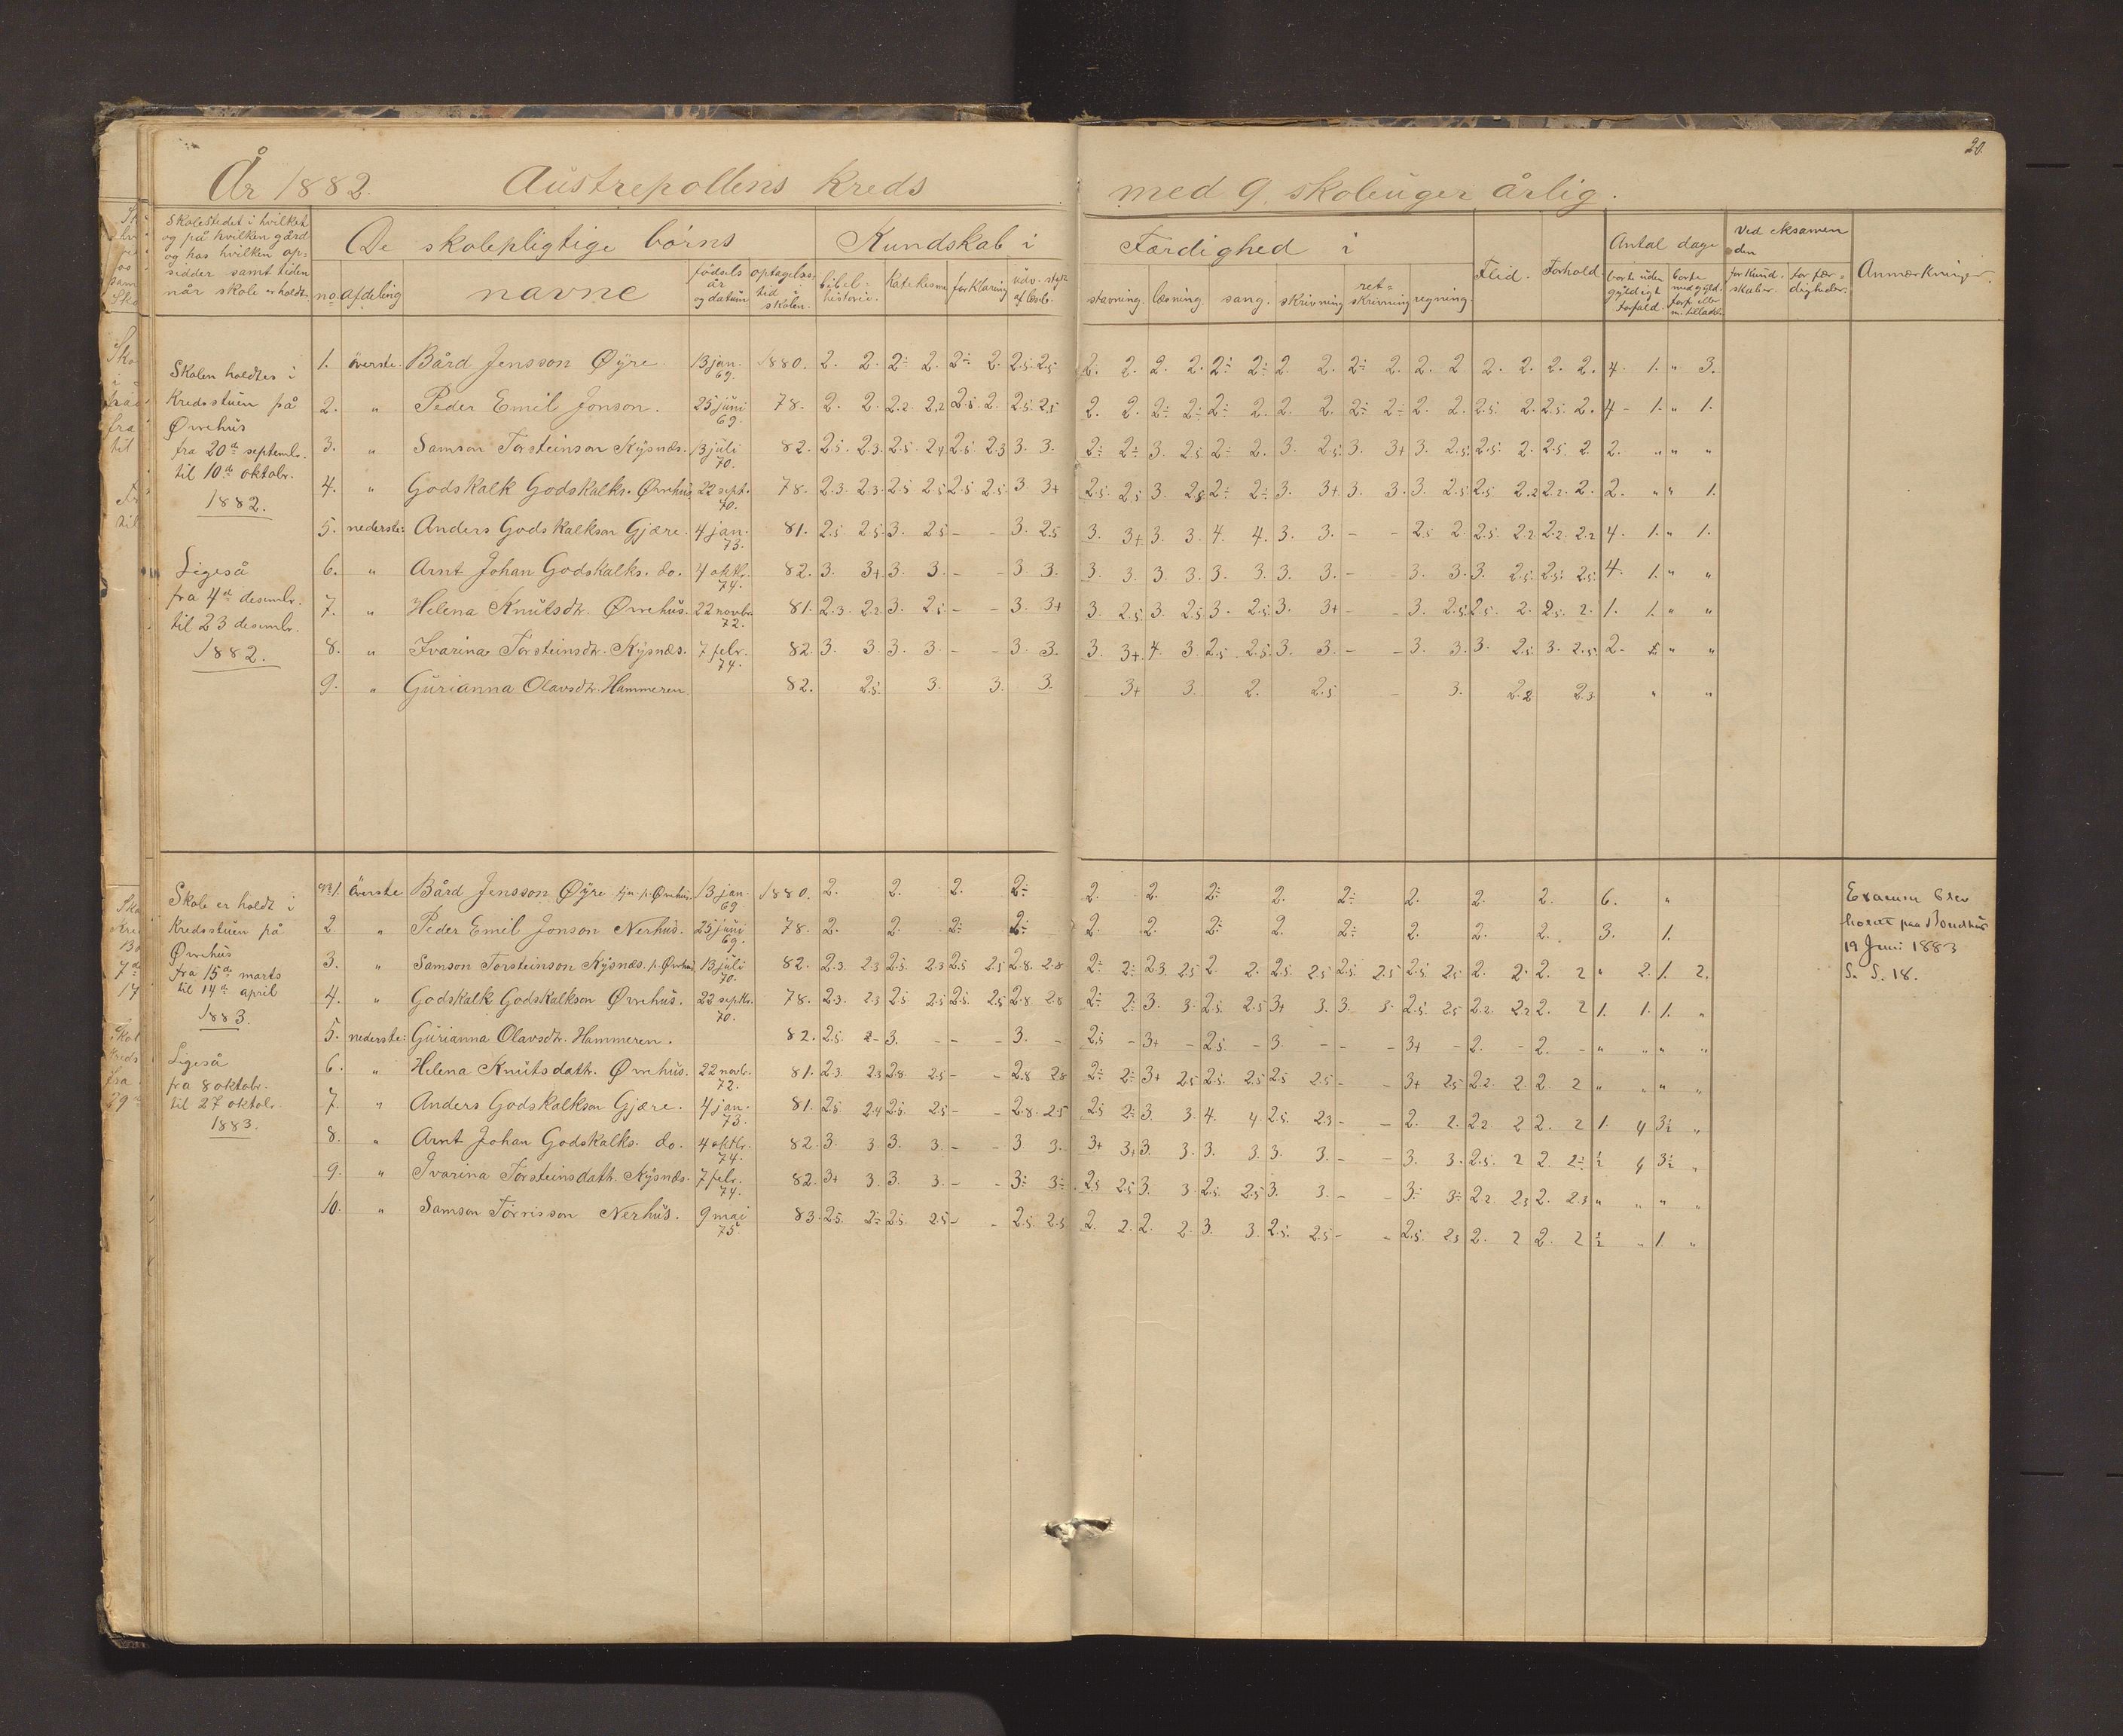 20.
År 1882. Austrepollens Kreds med 9. skoleuger årlig.
Skolestedet i hvilket
og på hvilken gård
og hos hvilken op-
sidder samt tiden
når skole er holdt.
De skolepligtige börns
no. afdeling
navne
födsels
år
og datum
optagelses-
tid i
skolen.
Kundskab i
bibel-
historie.
Katekisme
forklaring
udv. styk.
af læseb.
Færdighed i
stavning.
læsning.
sang.
skrivning
ret-
skrivning
regning.
Flid.
Forhold.
Antal dage
borte uden
gyldigt
forfald.
borte
med gyld.
forf. eller
m. tilladt.
Ved eksamen
den
for kund-
skaber.
for fær-
digheder.
Anmærkninger.
Skolen holdtes i
Kredsstuen på
Ørrehus
fra 20de septembr.
til 10de oktobr.
1882.
Ligeså
fra 4de desembr.
til 23 desembr.
1882.
1. överste. Bård Jensson Øyre 13 jan. 69. 1880. 2. 2. 2÷ 2. 2÷ 2. 2.5. 2.5 2. 2. 2. 2. 2÷ 2÷ 2. 2. 2÷ 2. 2. 2 2. 2. 2. 2. 4. 1. " 3.
2. " Peder Emil Jonson. 25 juni 69. 78. 2. 2. 2.2. 2.2 2.5 2. 2.5. 2.5 2. 2. 2÷ 2÷ 2÷ 2. 2. 2. 2÷ 2÷ 2. 2. 2.5. 2. 2.5. 2. 4- 1. " 1.
3. " Samson Torsteinson Kysnæs. 13 juli 70. 82. 2.5. 2.3. 2.5. 2.4 2.5. 2.3 3. 3. 2÷ 2÷ 3. 2.5 2÷ 2. 3. 2.5. 3. 3+ 3. 2.5. 2.5. 2. 2.5. 2. 2. " " "
4. " Godskalk Godskalks. Ørrehus 22 sept. 70. 78. 2.3. 2.3. 2.5 2.5 2.5 2.5 3 3+ 2.5. 2.5 3. 2.5 2÷ 2÷ 3. 3+ 3. 3. 3. 2.5 2.5 2.2 2.2. 2. 2. " " 1.
5. nederste: Anders Godskalkson Gjære. 4 jan. 73. 81. 2.5 2.5 3. 2.5 - - 3. 2.5 3. 3+ 3. 3. 4. 4. 3. 3. - - 2.5 2 2.5. 2.2 2.2. 2.2 4. 1. " 1.
6. " Arnt Johan Godskalks. do. 4 oktbr. 74. 82. 3. 3+ 3. 3. - - 3 3. 3. 3. 3. 3. 3. 3. 3. 3. - - 3. 3. 3. 2.5. 2.5. 2.5. 4. 1. " "
7. " Helena Knutsdtr. Ørrehus. 22 novbr. 72. 81. 2.3. 2.2 3. 2.5 - - 3. 3+ 3. 2.5. 3. 2.5 3. 2.5. 3. 3+ - - 3. 2.5 2.5. 2. 2.5. 2. 1. 1. " "
8. " Ivarina Torsteinsdtr. Kysnæs. 7 febr. 74. 82. 3. 3. 3. 3. - - 3. 3. 3. 3+ 4. 3. 2.5 2.5. 3. 3. - - 3. 3. 3. 2.5. 3. 2.5. 2. " "
9. " Gurianna Olavsdtr. Hammeren. 82. 2.5. 3. 3. 3. 3+ 3. 2. 2.5 - 3. 2.2 2.3 " "
Skole er holdt i
Kredsstuen på
Ørrehus
fra 15de marts
til 14de april
1883.
Ligeså
fra 8 oktobr.
til 27 oktobr.
1883.
No 1. överste Bård Jensson Øyre tjen. p. Ørrehus. 13 jan. 69. 1880. 2. 2. 2. 2÷ 2. 2. 2÷ 2. 2÷ 2. 2. 2. 6. "
2. " Peder Emil Jonson Nerhus. 25 juni 69. 78. 2. 2. 2÷ 2÷ 2. 2. 2÷ 2. 2÷ 2. 2. 2. 3. 1.
3. " Samson Torsteinson Kysnæs. p. Ørrehus 13 juli 70. 82. 2.3. 2.3 2.5. 2.3 2.5 2.5 2.8. 2.8 2÷ 2÷ 2.3 2.5 2. 2. 2.5. 2.5 2.5. 2.5 2.5. 2.5 2. 2. 2. 2 " 2. 1. 2.
4. " Godskalk Godskalkson Ørrehus. 22 septbr. 70. 78. 2.3. 2.3 2.5 2.5 2.5. 2.5 2.8 2.8 2÷ 2÷ 3. 3. 2.5. 2.5 3+ 3. 3. 3. 2.5. 2.5 2.2. 2.2 2. 2 1. 1. 1. "
5. nederste: Gurianna Olavsdtr. Hammeren. 82. 2.5. 2- 3. - - - 3. - 2.5 - 3+ - 2.5. - 3. - - - 3+ - 2. - 2. - " " " "
6. " Helena Knutsdath. Ørrehus. 22 novb. 72. 81. 2.3. 2.3 2.8 2.5 - - 2.8 2.8 2÷ 2÷ 3+ 2.5 2.5. 2.5 2.5 2.5 - - 3+ 2.5 2.2 2. 2. 2 " " " "
7. " Anders Godskalkson Gjære. 4 jan. 73. 81. 2.5. 2.4 2.5. 2.5 - - 2.8. 2.5 2.5 2÷ 3. 3. 4. 4. 2.5. 2.3 - - 2. 2. 2.2 2 2. 2 1. 4 3½ "
8. " Arnt Johan Godskalks. do. 4 oktbr. 74. 82. 3. 3 3. 3. - - 3 3. 3+ 3+ 3. 3. 3. 3. 3. 3. - - 3. 3. 2.5. 2 2. 2÷ ½ 4 3½ "
9. " Ivarina Torsteinsdath. Kysnæs. 7 febr. 74. 82. 3+ 3. 3. 3. - - 3÷ 3÷ 2.5 2.5 3. 3. 2.5. 2.5 3. 3. - - 3÷ 3÷ 2.2. 2.3 2. 2.3 " " " "
10. " Samson Tørrisson Nerhus. 9 mai 75. 83. 2.5. 2÷ 2.5. 2.5 - - 2.5. 2.5 2. 2. 2. 2. 3. 3. 2.5. 2.5 - - 2.5. 2.3 2. 2 2. 2 ½ " 1. "
Examen blev
holdt paa Bondhus
19 Juni 1883
S. S. 18.